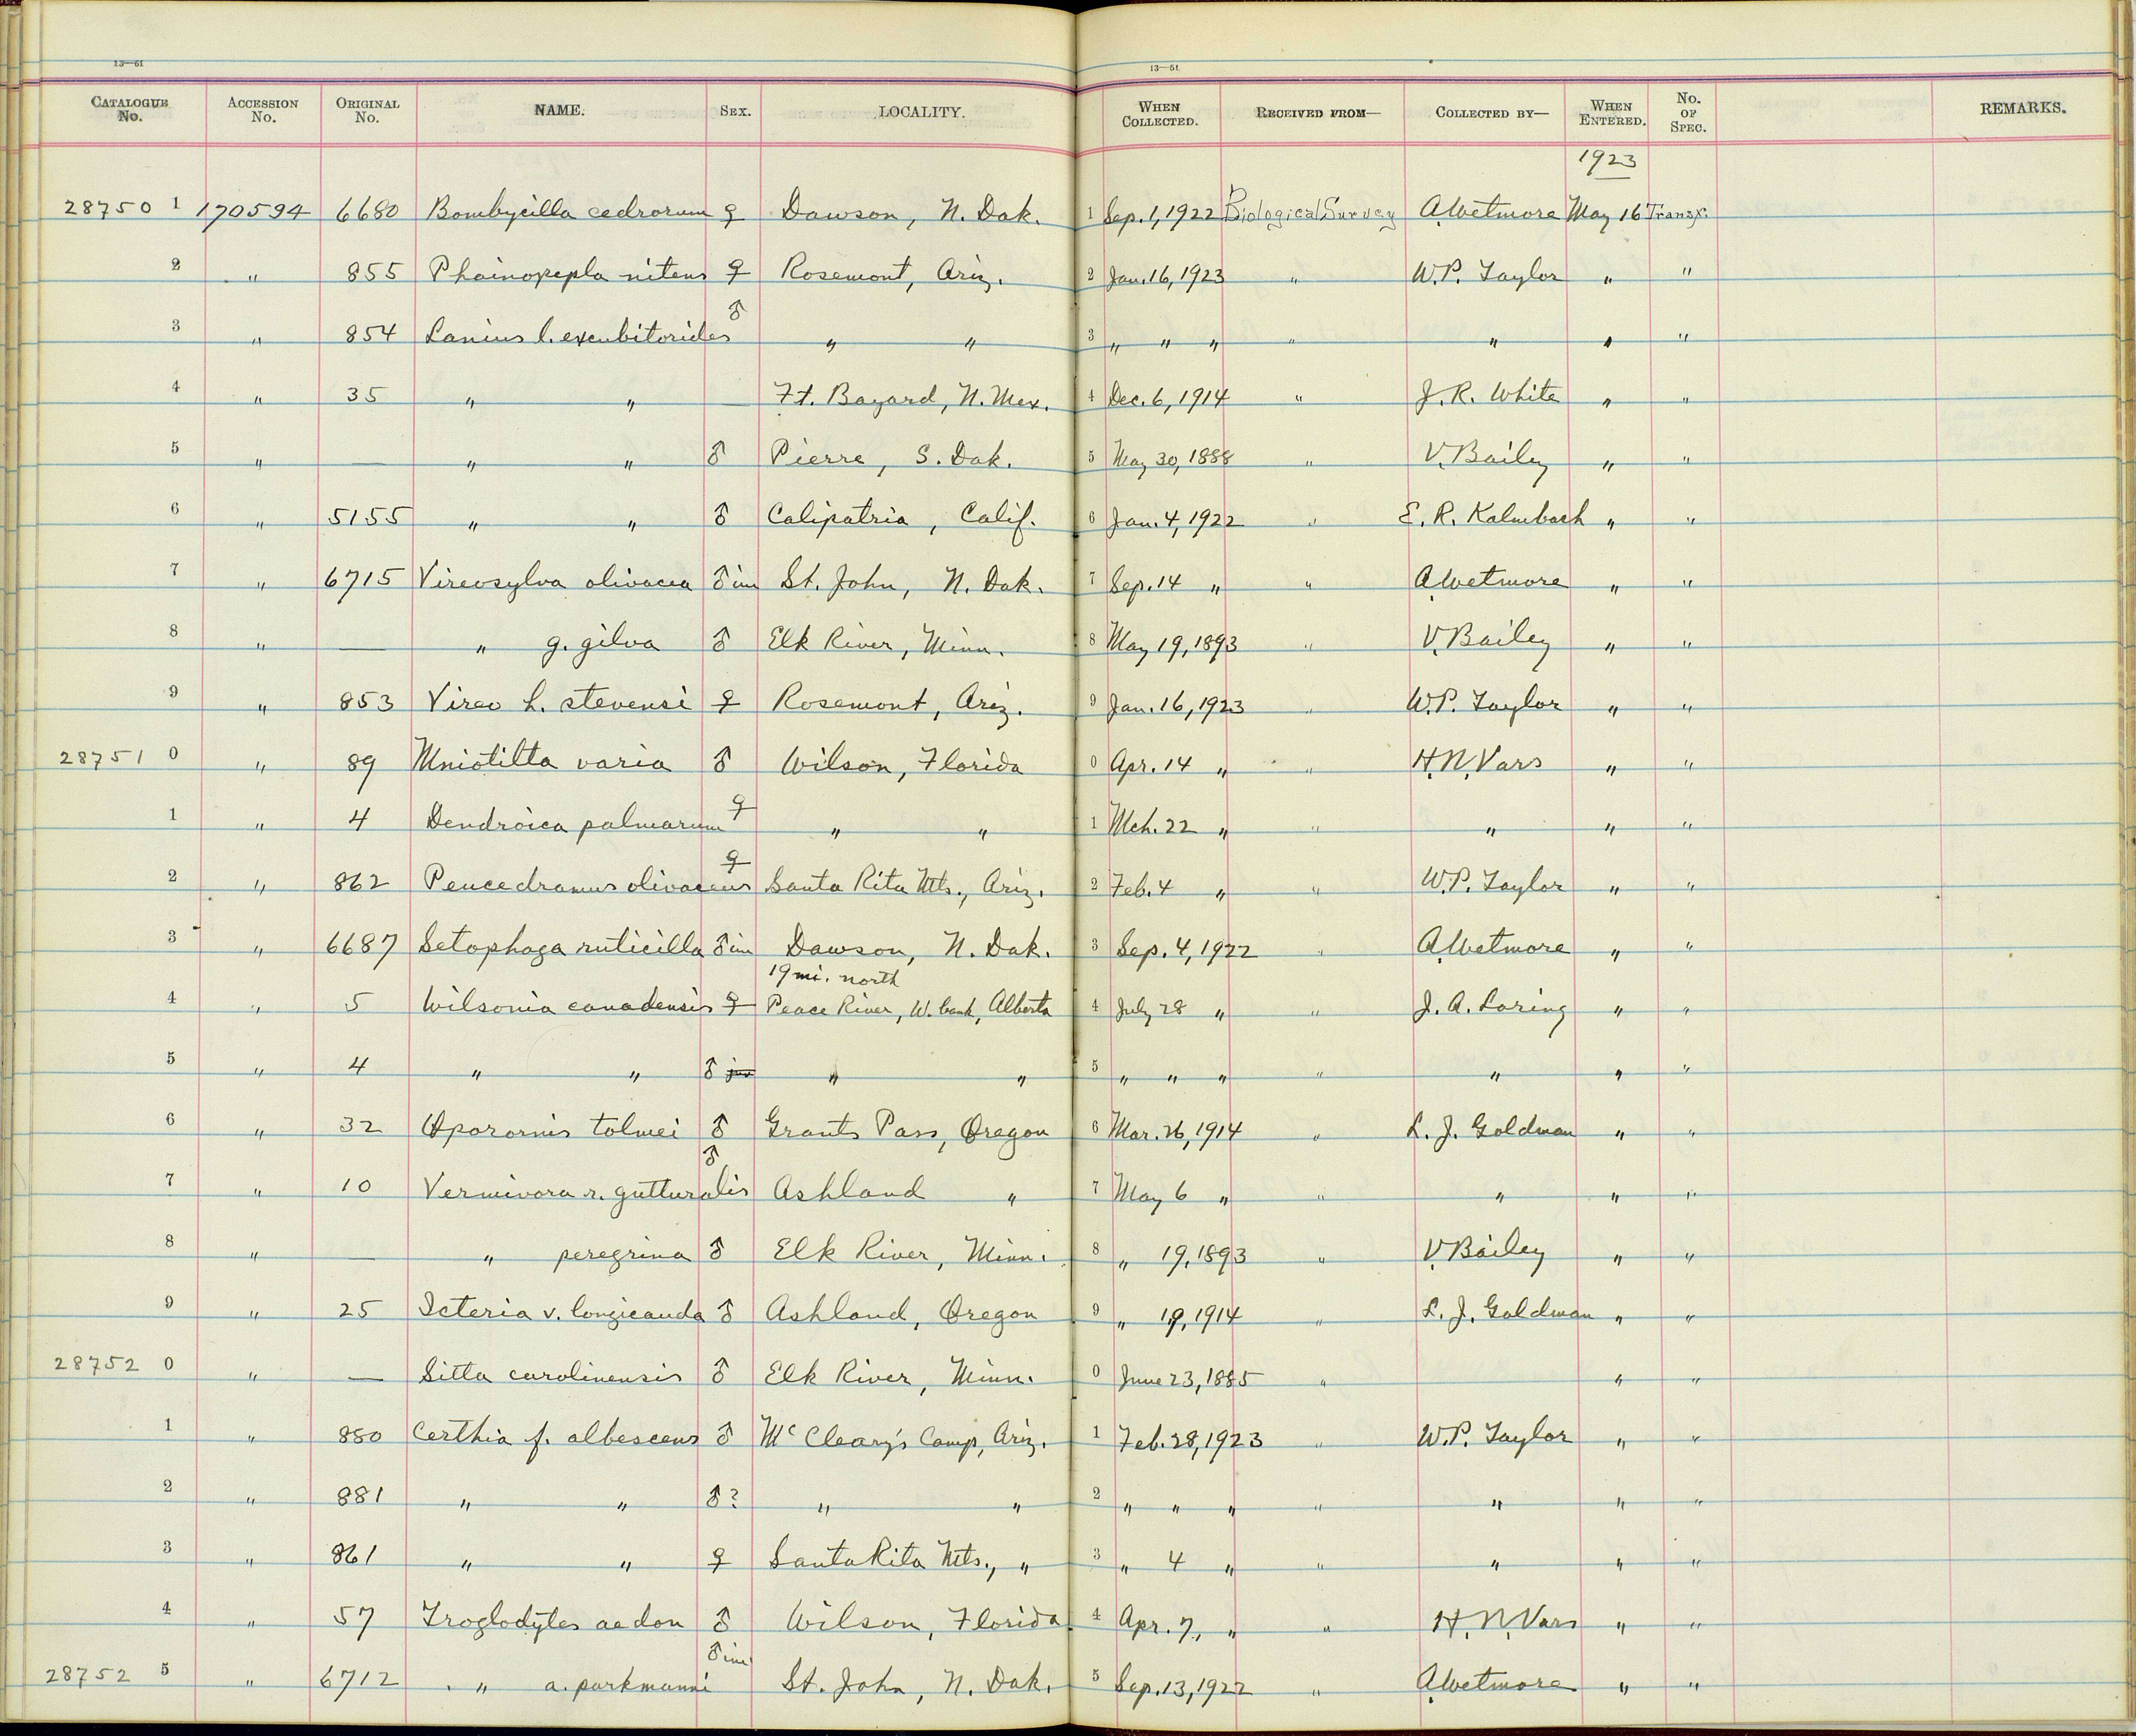 13—61 13—51
CATALOGUE No. ACCESSION No. ORIGINAL No. NAME. SEX. LOCALITY. WHEN COLLECTED. RECEIVED FROM— COLLECTED BY— WHEN ENTERED. No. OF SPEC. REMARKS.
1923
28750 1 170594 6680 Bombycilla cedrorum ♀ Dawson, N. Dak. 1 Sep. 1, 1922 Biological Survey A. Wetmore May 16 Transf.
2 " 855 Phainopepla nitens ♀ Rosemont, Ariz. 2 Jan. 16, 1923 " W.P. Taylor " "
3 " 854 Lanius l. excubitorides ♂ " " 3 " " " " " " "
4 " 35 " " — Ft. Bayard, N. Mex. 4 Dec. 6, 1914 " J. R. White " "
5 " — " " ♂ Pierre, S. Dak. 5 May 30, 1888 " V. Bailey " "
6 " 5155 " " ♂ Calipatria, Calif. 6 Jan. 4, 1922 " E. R. Kalmbach " "
7 " 6715 Vireosylva olivacea ♂ im St. John, N. Dak. 7 Sep. 14 " " A. Wetmore " "
8 " — " g. gilva ♂ Elk River, Minn. 8 May 19, 1893 " V. Bailey " "
9 " 853 Vireo h. stevensi ♀ Rosemont, Ariz. 9 Jan. 16, 1923 " W.P. Taylor " "
28751 0 " 89 Mniotilta varia ♂ Wilson, Florida 0 Apr. 14 " " H. N. Vars " "
1 " 4 Dendroica palmarum ♀ " " 1 Mch. 22 " " " " "
2 " 862 Peucedramus olivaceus ♀ Santa Rita Mts., Ariz. 2 Feb. 4 " " W.P. Taylor " "
3 " 6687 Setophaga ruticilla ♂ im Dawson, N. Dak. 3 Sep. 4, 1922 " A. Wetmore " "
19 mi. north
4 " 5 Wilsonia canadensis ♀ Peace River, W. bank, Alberta 4 July 28 " " J. A. Loring " "
5 " 4 " " ♂ " " 5 " " " " " " "
6 " 32 Oporornis tolmei ♂ Grants Pass, Oregon 6 Mar. 26, 1914 " L. J. Goldman " "
7 " 10 Vermivora r. gutturalis ♂ Ashland " 7 May 6 " " " " "
8 " — " peregrina ♂ Elk River, Minn. 8 " 19, 1893 " V. Bailey " "
9 " 25 Icteria v. longicauda ♂ Ashland, Oregon 9 " 19, 1914 " L. J. Goldman " "
28752 0 " — Sitta carolinensis ♂ Elk River, Minn. 0 June 23, 1885 " " "
1 " 880 Certhia f. albescens ♂ McCleary's Camp, Ariz. 1 Feb. 28, 1923 " W.P. Taylor " "
2 " 881 " " ♂? " " 2 " " " " " " "
3 " 861 " " ♀ Santa Rita Mts., " 3 " 4 " " " " "
4 " 57 Troglodytes aedon ♂ Wilson, Florida 4 Apr. 7, " " H. N. Vars " "
28752 5 " 6712 " a. parkmanni ♂ im St. John, N. Dak. 5 Sep. 13, 1922 " A. Wetmore " "